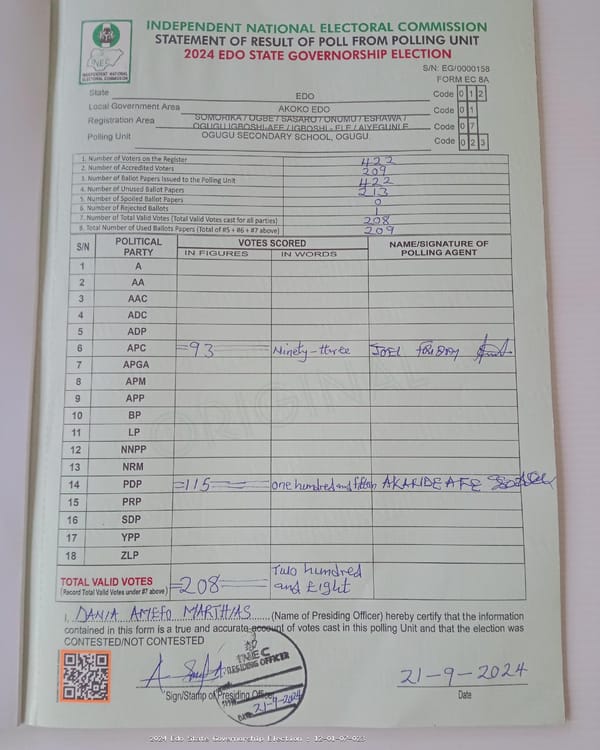 INDEPENDENT NATIONAL ELECTORAL COMMISSION
STATEMENT OF RESULT OF POLL FROM POLLING UNIT
2024 EDO STATE GOVERNORSHIP ELECTION
INEC
INDEPENDENT NATIONAL ELECTORAL COMMISSION
S/N: EG/0000158
FORM EC 8A
State EDO Code 0 1 2
Local Government Area AKOKO EDO Code 0 1
Registration Area SOMORIKA / OGBE / SASARO / ONUMU / ESHAWA / OGUGU IGBOSHI-AFE / IGBOSHI - ELE / AIYEGUNLE Code 0 7
Polling Unit OGUGU SECONDARY SCHOOL, OGUGU. Code 0 2 3
1. Number of Voters on the Register 422
2. Number of Accredited Voters 209
3. Number of Ballot Papers Issued to the Polling Unit 422
4. Number of Unused Ballot Papers 213
5. Number of Spoiled Ballot Papers 0
6. Number of Rejected Ballots 1
7. Number of Total Valid Votes (Total Valid Votes cast for all parties) 208
8. Total Number of Used Ballots Papers (Total of #5 + #6 + #7 above) 209
S/N POLITICAL PARTY VOTES SCORED NAME/SIGNATURE OF POLLING AGENT
IN FIGURES IN WORDS
1 A
2 AA
3 AAC
4 ADC
5 ADP
6 APC =93 Ninety-three JOEL FRIDAY
7 APGA
8 APM
9 APP
10 BP
11 LP
12 NNPP
13 NRM
14 PDP =115 one hundred and fifteen AKARIDE AFE
15 PRP
16 SDP
17 YPP
18 ZLP
ORIGINAL
TOTAL VALID VOTES =208 Two hundred
(Record Total Valid Votes under #7 above) and Eight
I, DANIA AMEFO MARTHIAS (Name of Presiding Officer) hereby certify that the information
contained in this form is a true and accurate account of votes cast in this polling Unit and that the election was
CONTESTED/NOT CONTESTED
INEC
PRESIDING OFFICER
DATE 21-9-2024
Sign/Stamp of Presiding Officer
21-9-2024
Date
2024 Edo State Governorship Election : 12-01-07-023